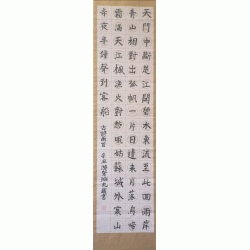 天門中斷楚江開碧水東流至此回兩岸
青山相對出孤帆一片日邊來月落烏啼
霜滿天江楓漁火對愁眠姑蘇城外寒山
寺夜半鐘聲到客船
古詩兩首 辛丑 書